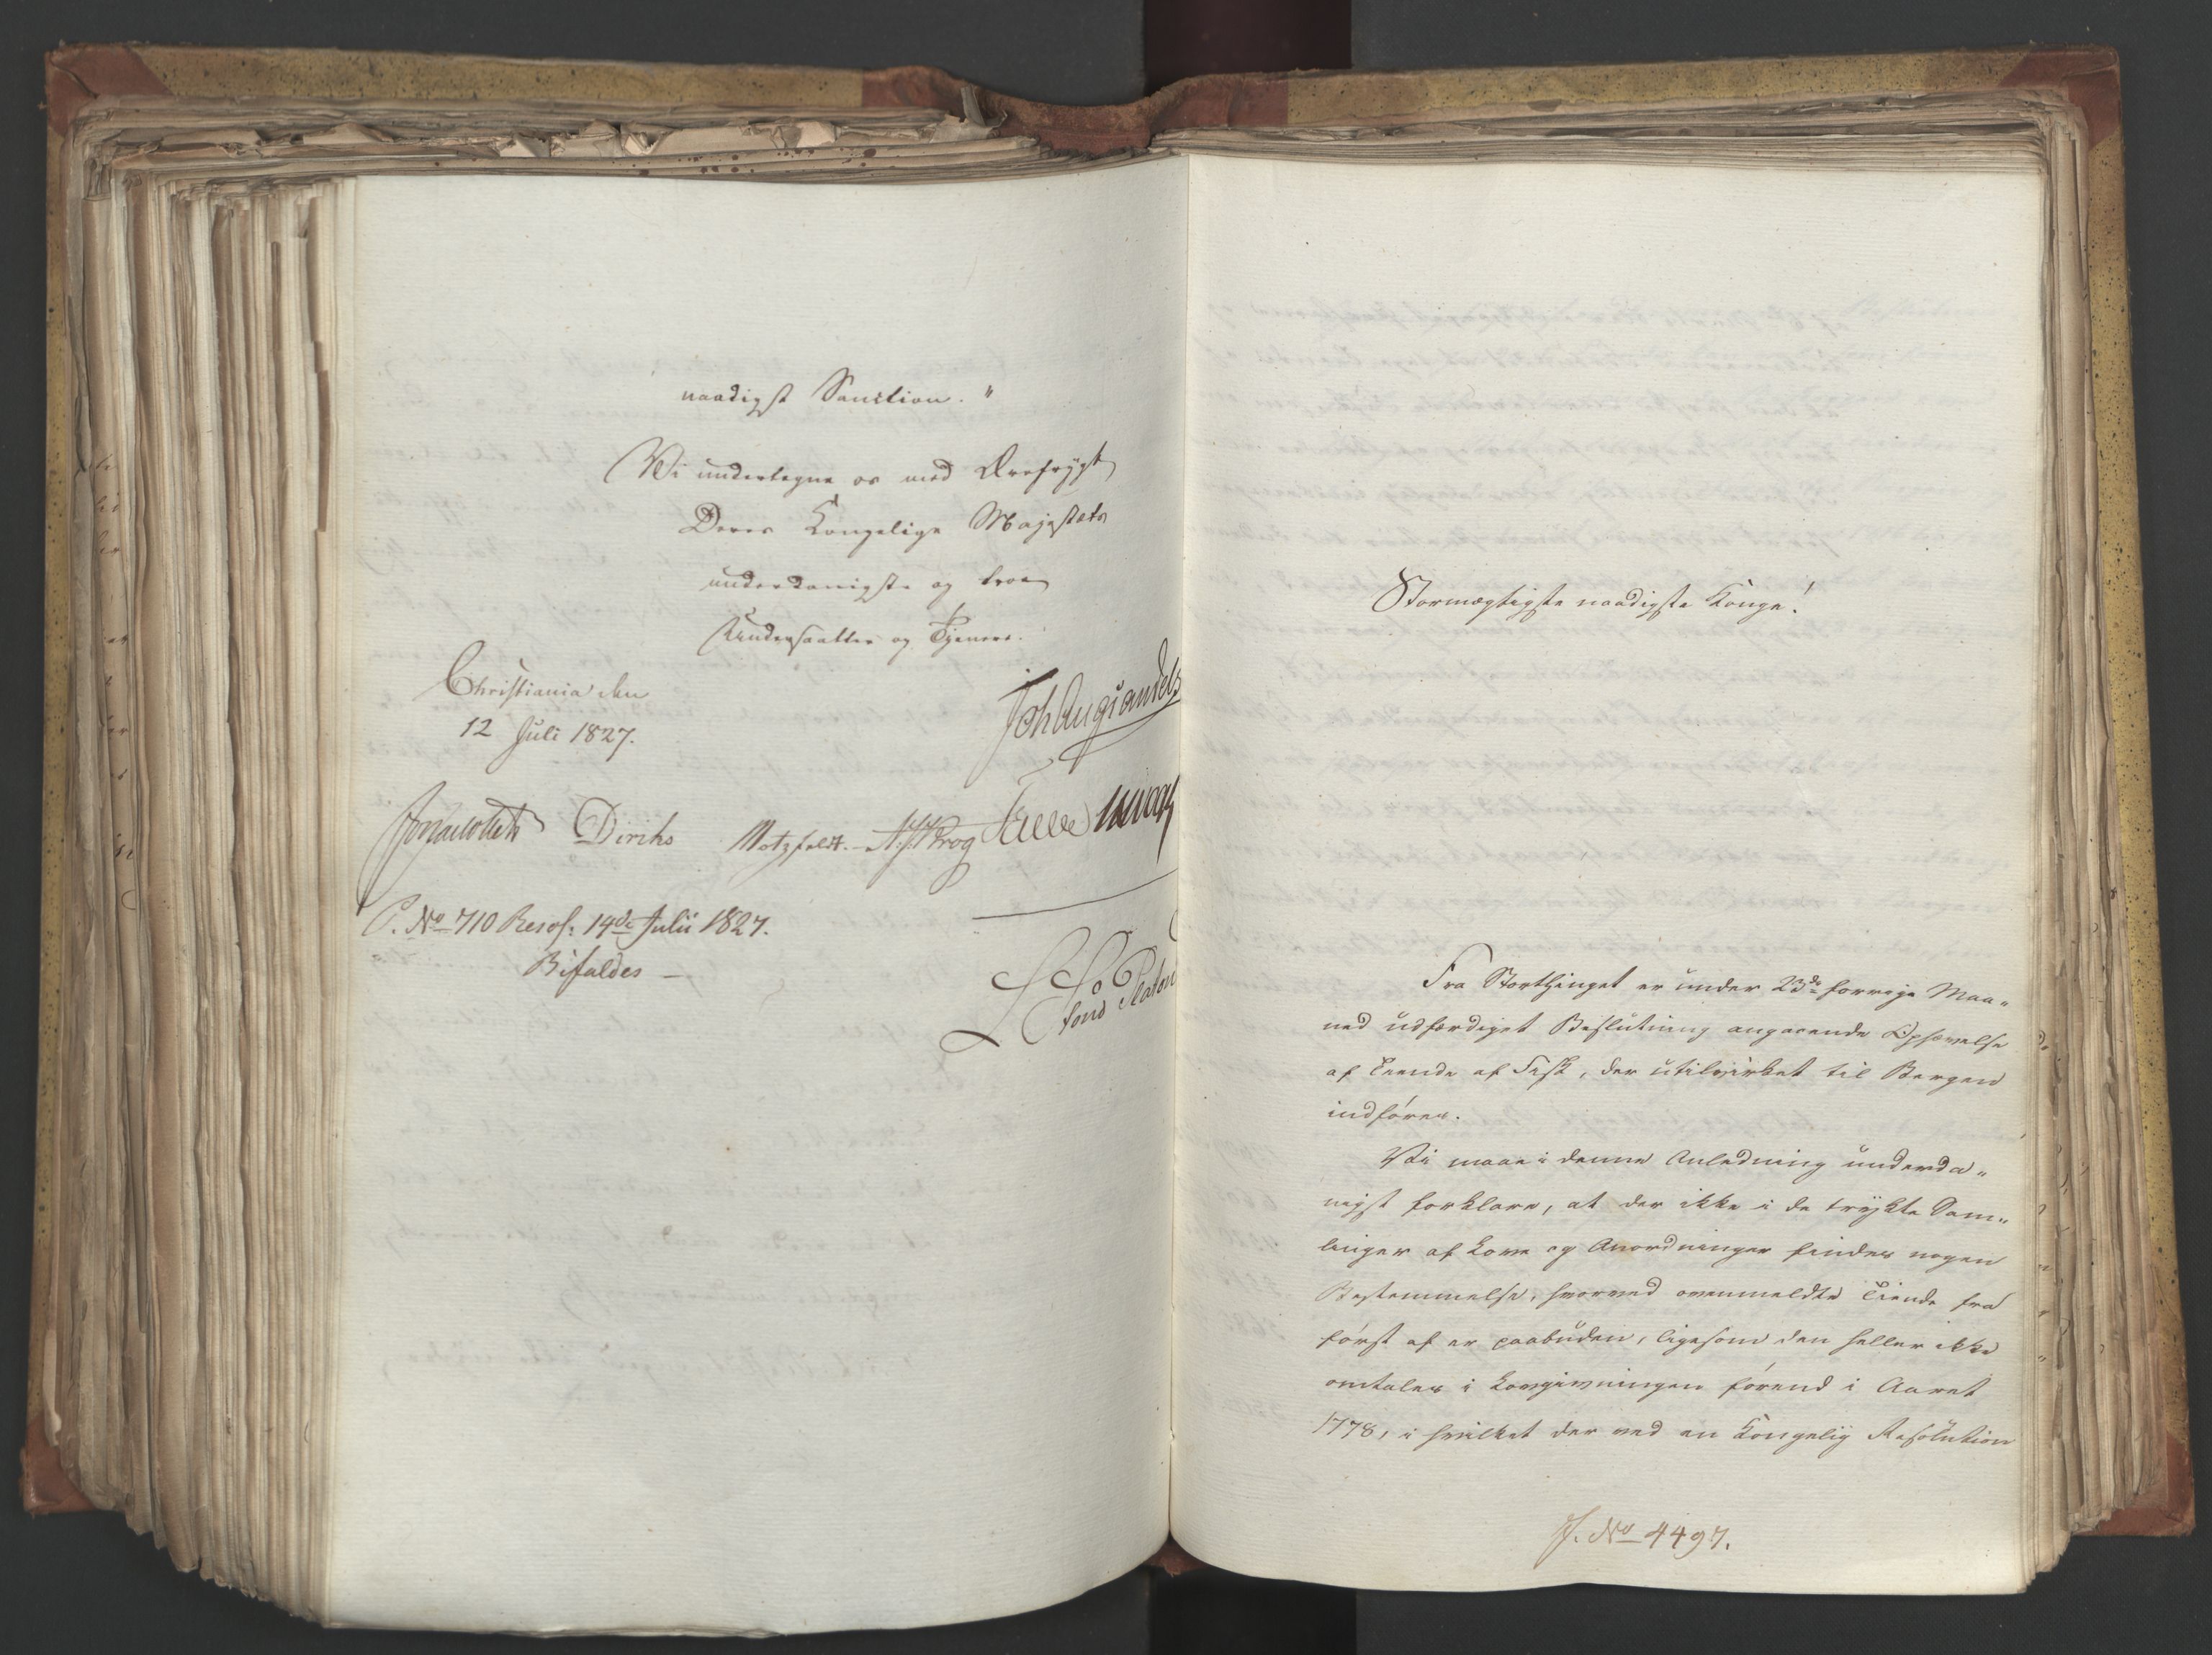 naadigst Sanction."
Vi undertegne os med Ærefrygt
Deres Kongelige Majestæts
underdanigste og troe
Undersaatter og Tjenere.
Christiania den
12 Juli 1827.
Joh Aug Sandels
Jonas Collett Diriks Motzfeldt. A. J. Krog
C. No 710 Resol: 14de Julii 1827.
Bifaldes —
Stormægtigste naadigste Konge!
Fra Storthinget er under 23de forrige Maa-
ned udfærdiget Beslutning angaaende Ophævelse
af Tiende af Fisk, der utilvirket til Bergen
indføres.
Vi maae i denne Anledning underda-
nigst forklare, at der ikke i de trykte Sam-
linger af Love og Anordninger findes nogen
Bestemmelse, hvorved ovenmeldte Tiende fra
først af er paabuden, ligesom den heller ikke
omtales i Lovgivningen førend i Aaret
1778, i hvilket der ved en Kongelig Resolution
J. No 4497.